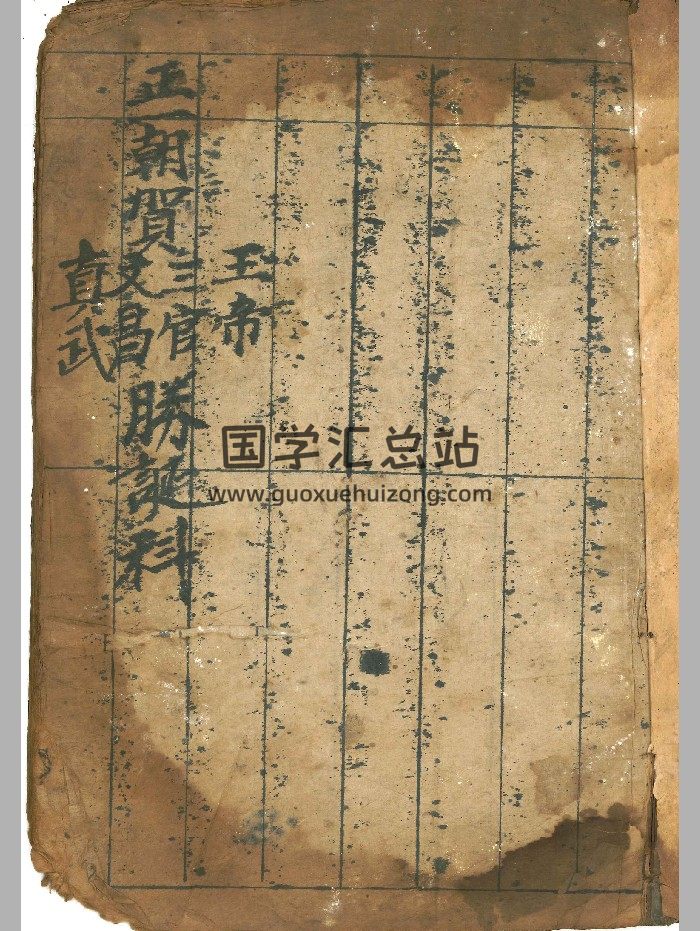 正一朝賀
玉帝
三官
文昌
真武
勝誕科
国学汇总站
www.guoxuehuizong.com